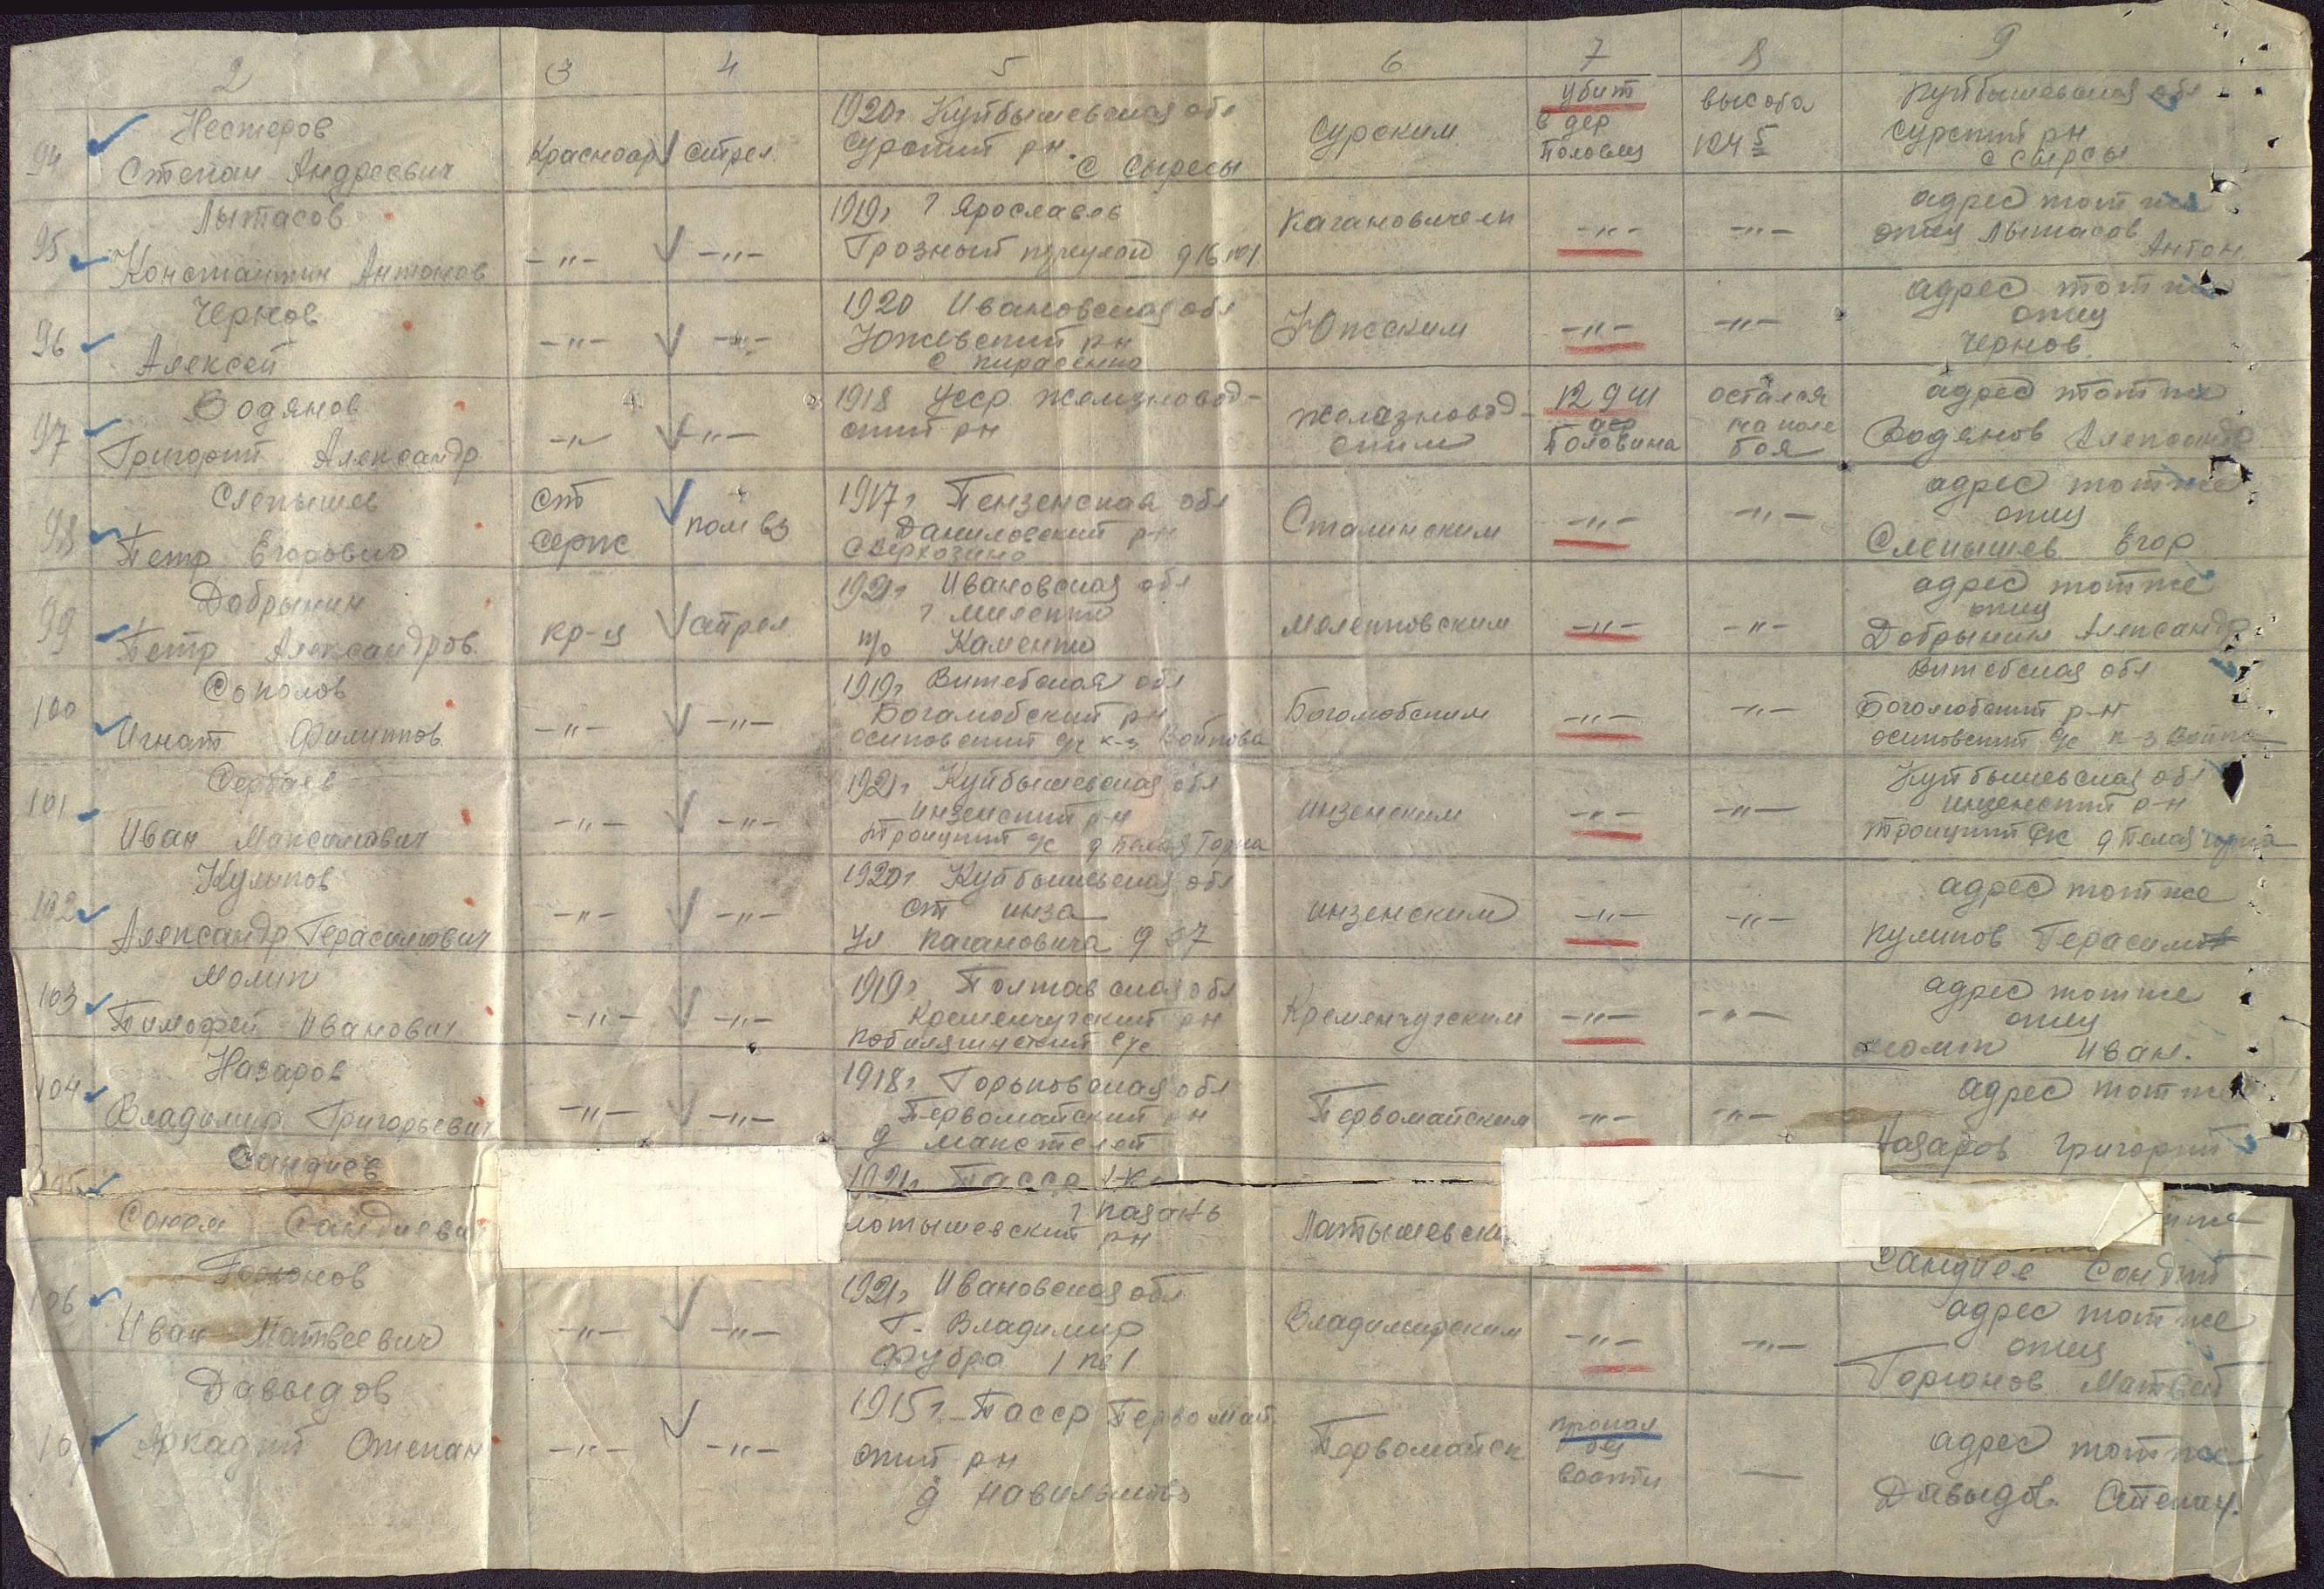 2 3 4 5 6 7 8 9
94 Нестеров
Степан Андреевич
Красноар стрел.
1920г Куйбышевская обл
Сурский рн.
с Сыресы
Сурским
убит
в дер
Половец
высота
124 5
Куйбышевская обл
Сурский рн
с Сыресы
95 Лытасов
Константин Антонов
-"- -"-
1919г г Ярославль
Грозный д 16
Кагановичем
-"- -"-
адрес тот же
отец Лытасов
Антон.
96 Чернов
Алексей
-"- -"-
1920 Ивановская обл
Южевский рн
с
Южским
-"- -"-
адрес тот же
отец
Чернов
97 Водянов
Григорий Александр
-"- -"-
1918 Усср Железновод-
ский рн
Железновод-
ским
12 9 41
дер
Половина
остался
на поле
боя
адрес тот же
Водянов Александр
98 Слепышев
Петр Егорович
ст
серж
пом вз
1917г Пензенская обл
Даниловский р-н
Сталинским
-"- -"-
адрес тот же
отец
Слепышев Егор
99 Добрынин
Петр Александров.
кр-ц стрел
1921г Ивановская обл
г
п/о Каменка
Меленковским
-"- -"-
адрес тот же
отец
Добрынин Александр
100 Соколов
Игнат Филиппов.
-"- -"-
1919г Витебская обл
Богомобский рн
осиповский с/с к-з Войкова
Богомобским
-"- -"-
Витебская обл
р-н
осиповский с/с к-з
101 Сербаев
Иван Максимович
-"- -"-
1921г Куйбышевская обл
инзенский р-н
троицкий с/с д Горка
инзенским
-"- -"-
Куйбышевская обл
инзенский р-н
троицкий с/с д
102 Куликов
Александр Герасимович
-"- -"-
1920г Куйбышевская обл
ст инза
ул Кагановича д 37
инзенским
-"- -"-
адрес тот же
Куликов Герасим
103
Тимофей Иванович
-"- -"-
1919г Полтавская обл
Кременчугский рн
с/с
Кременчугским
-"- -"-
адрес тот же
отец
Иван.
104 Назаров
Владимир Григорьевич
-"- -"-
1918г Горьковская обл
Первомайский рн
д
Первомайским
-"- -"-
адрес тот же
Назаров Григорий
Сандиев
Сандиеви
1921г Тасср
г Казань
лотышевский рн
Латышевски
Сандиев
106
Иван Матвеевич
-"- -"-
1921г Ивановская обл
Г. Владимир
Фубра
Владимирским
-"- -"-
адрес тот же
отец
Горюнов Матвей
Давыдов
Аркадий Степан
-"- -"-
1915г. Тасср Первомай
ский рн
д
Первомайск
пропал
без
вести
—
адрес тот же
Давыдов. Степан.